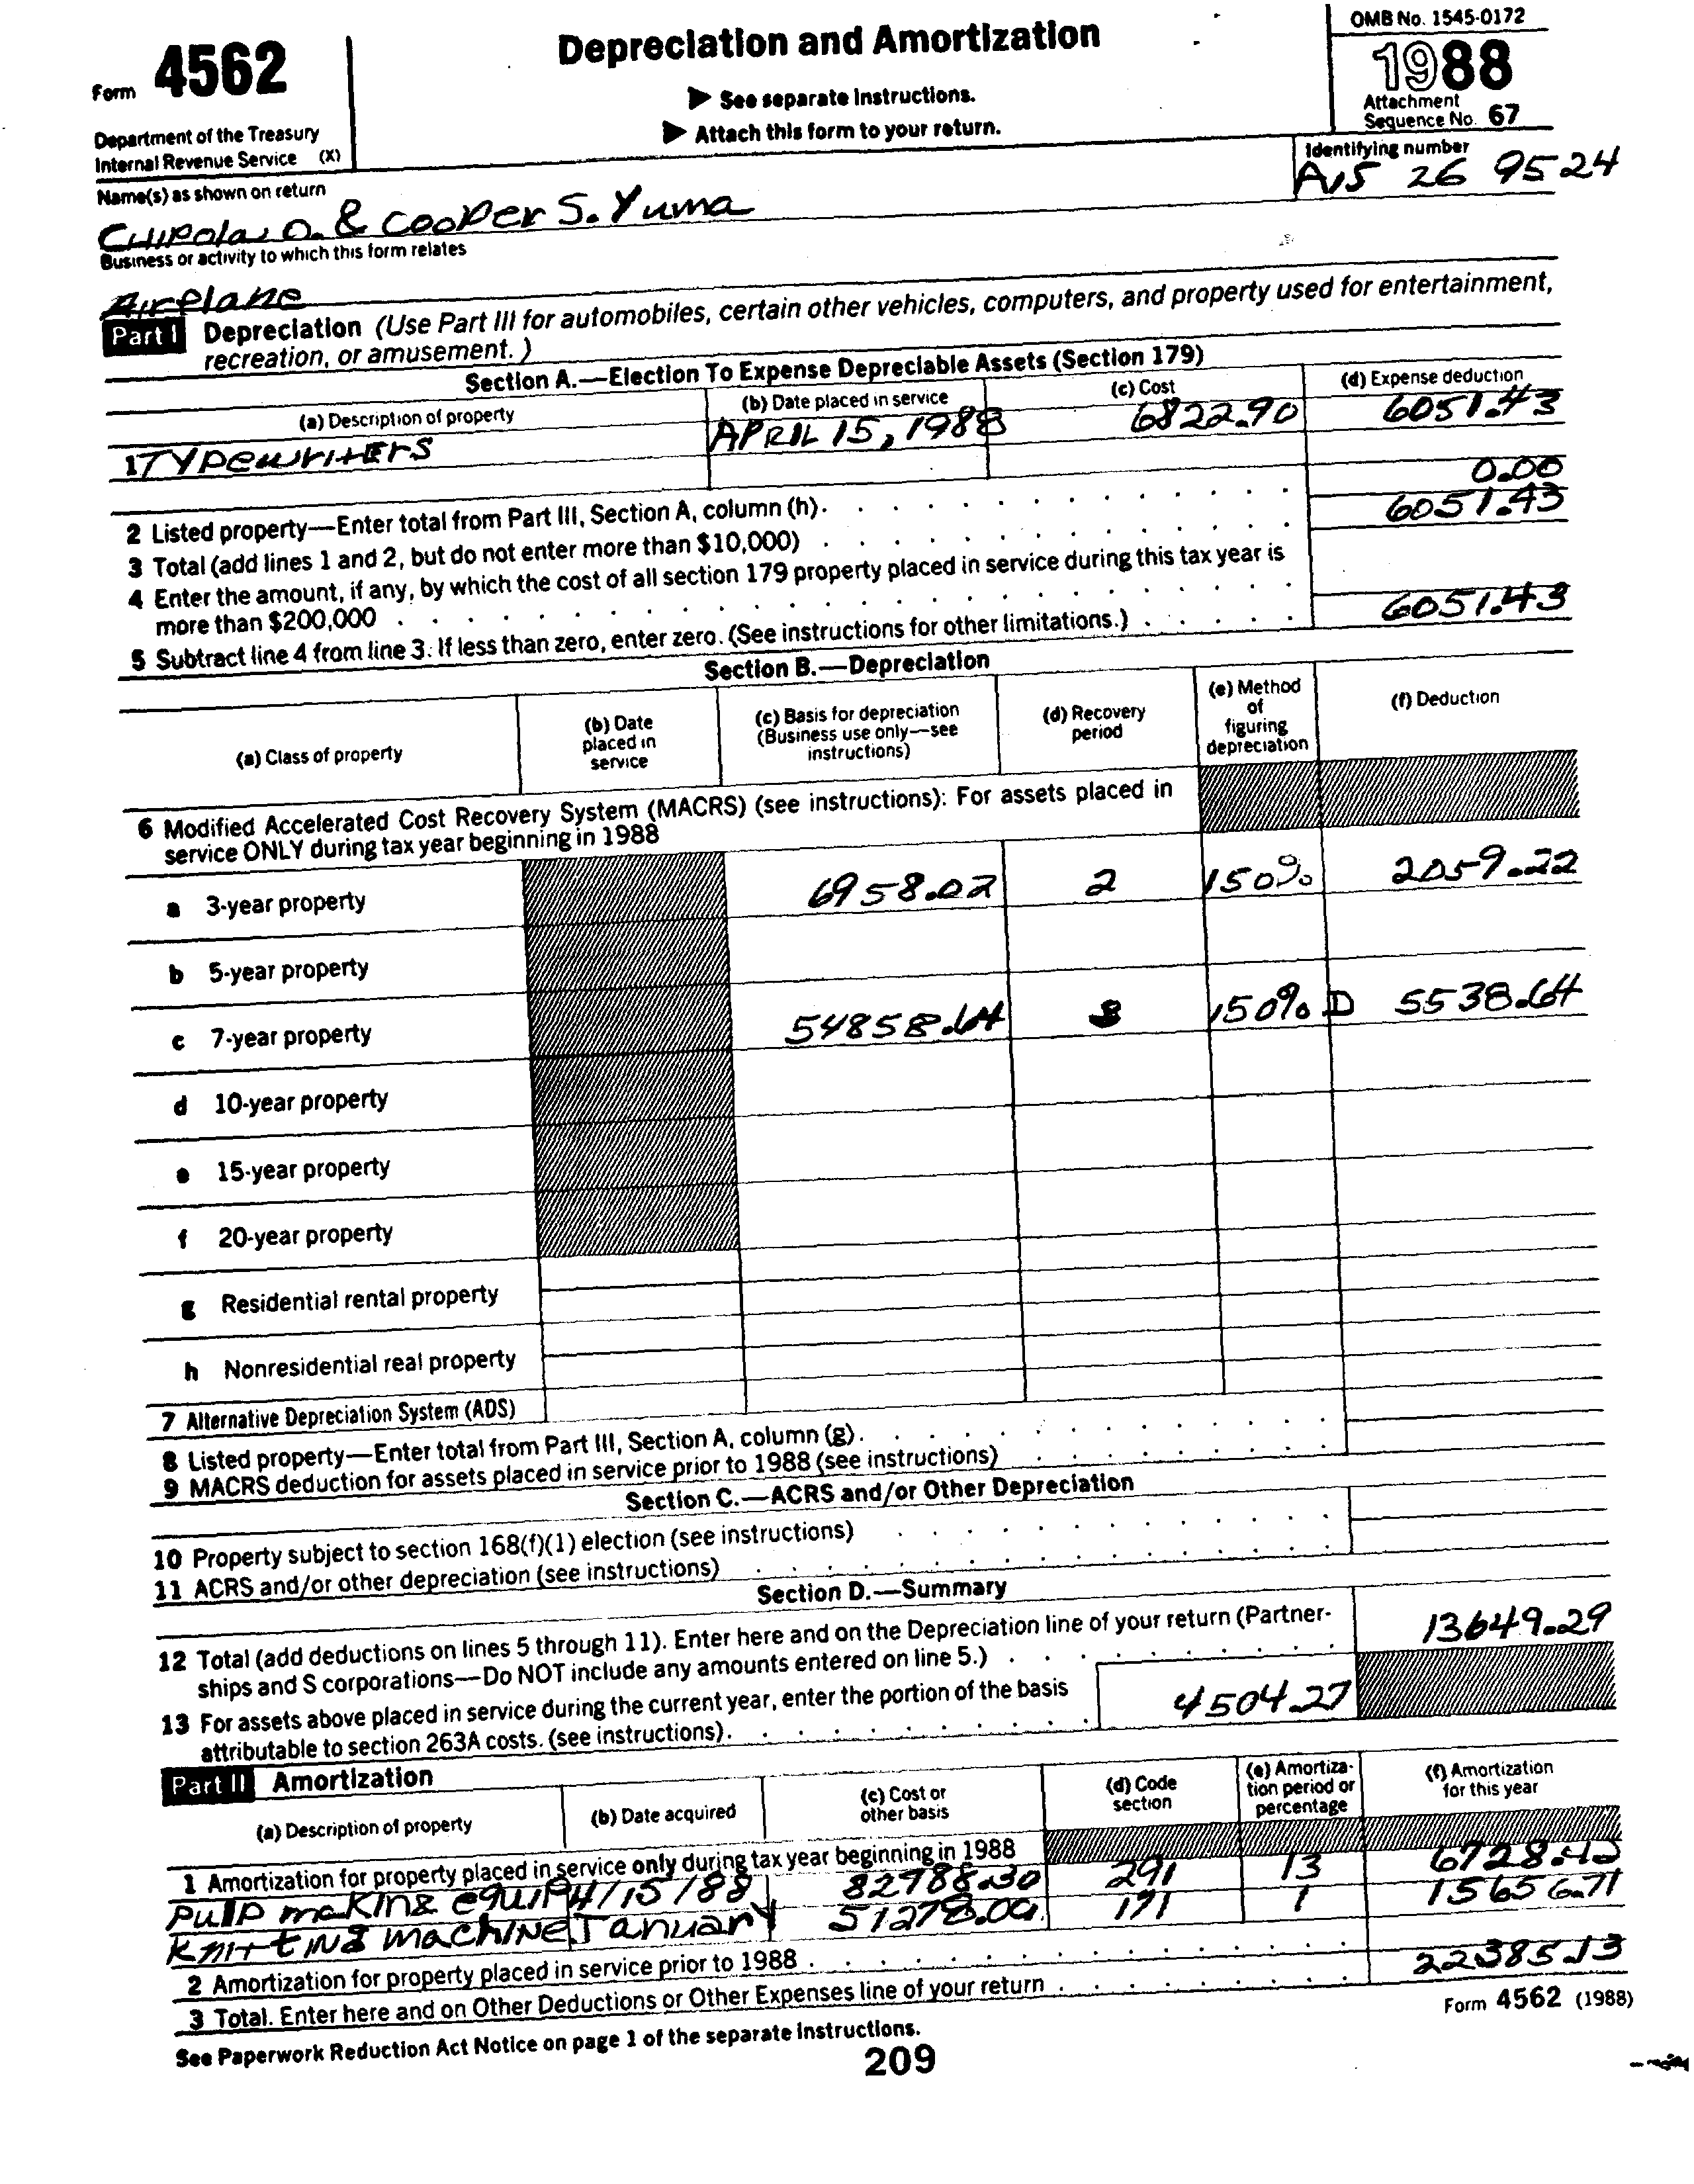 OMB No. 1545-0172
Form 4562
Depreciation and Amortization
1988
▶ See separate instructions.
▶ Attach this form to your return.
Attachment
Sequence No. 67
Department of the Treasury
Internal Revenue Service (X)
Name(s) as shown on return
Identifying number
26 9524
& Cooper S. Yuma
Business or activity to which this form relates
Airplane
Part I Depreciation (Use Part III for automobiles, certain other vehicles, computers, and property used for entertainment,
recreation, or amusement. )
Section A.—Election To Expense Depreciable Assets (Section 179)
(a) Description of property (b) Date placed in service (c) Cost (d) Expense deduction
1 TYPewritErs APRIL 15, 1988 6822.90 6051.43
2 Listed property—Enter total from Part III, Section A, column (h). 0.00
3 Total (add lines 1 and 2, but do not enter more than $10,000) 6051.43
4 Enter the amount, if any, by which the cost of all section 179 property placed in service during this tax year is
more than $200,000
5 Subtract line 4 from line 3. If less than zero, enter zero. (See instructions for other limitations.) 6051.43
Section B.—Depreciation
(a) Class of property (b) Date placed in service (c) Basis for depreciation (Business use only—see instructions) (d) Recovery period (e) Method of figuring depreciation (f) Deduction
6 Modified Accelerated Cost Recovery System (MACRS) (see instructions): For assets placed in
service ONLY during tax year beginning in 1988
a 3-year property 6958.02 2 150% 2059.22
b 5-year property
c 7-year property 54858.64 8 150% D 5538.64
d 10-year property
e 15-year property
f 20-year property
g Residential rental property
h Nonresidential real property
7 Alternative Depreciation System (ADS)
8 Listed property—Enter total from Part III, Section A, column (g).
9 MACRS deduction for assets placed in service prior to 1988 (see instructions)
Section C.—ACRS and/or Other Depreciation
10 Property subject to section 168(f)(1) election (see instructions)
11 ACRS and/or other depreciation (see instructions)
Section D.—Summary
12 Total (add deductions on lines 5 through 11). Enter here and on the Depreciation line of your return (Partner-
ships and S corporations—Do NOT include any amounts entered on line 5.) 13649.29
13 For assets above placed in service during the current year, enter the portion of the basis
attributable to section 263A costs. (see instructions). 4504.27
Part II Amortization
(a) Description of property (b) Date acquired (c) Cost or other basis (d) Code section (e) Amortiza-tion period or percentage (f) Amortization for this year
1 Amortization for property placed in service only during tax year beginning in 1988
Pulp making equip 4/15/88 82988.30 291 13 6728.42
Knitting machine January 51278.09 171 1 15656.71
2 Amortization for property placed in service prior to 1988
3 Total. Enter here and on Other Deductions or Other Expenses line of your return 22385.13
See Paperwork Reduction Act Notice on page 1 of the separate instructions.
Form 4562 (1988)
209